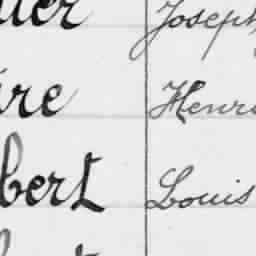 uer Joseph
ire Henri
bert Louis